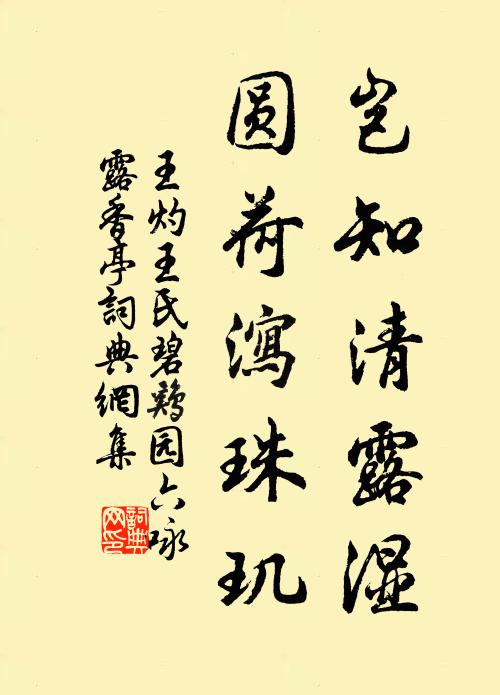 岂知清露湿
圆荷泻珠玑
王灼王氏碧鸡园六咏
露香亭詞典網集
詞典网印